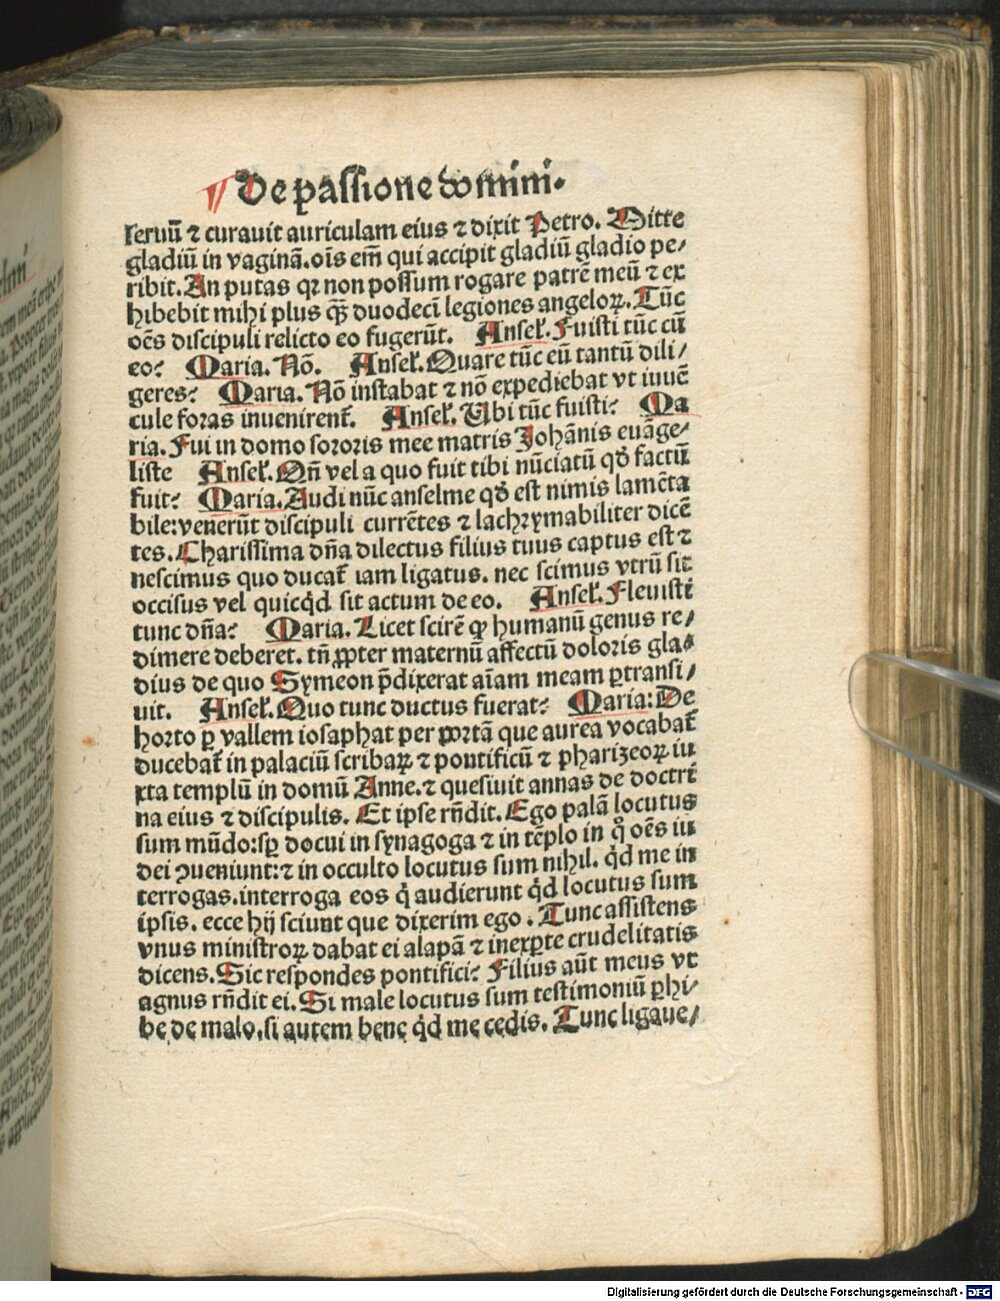 De passione domini.
seruū ⁊ curauit auriculam eius ⁊ dixit Petro. Mitte
gladiū in vaginā. oīs em̄ qui accipit gladiū gladio pe/
ribit. An putas qꝛ non possum rogare patrē meū ⁊ ex
hibebit mihi plus qꝫ̄ duodecī legiones angeloꝝ. Tūc
oēs discipuli relicto eo fugerūt. Ansel'. Fuisti tūc cū
eo? Maria. Nō. Ansel'. Quare tūc eū tantū dili/
geres? Maria. Nō instabat ⁊ nō expediebat vt iuuē
cule foras inuenirent'. Ansel'. Ubi tūc fuisti? Ma
ria. Fui in domo sororis mee matris Johānis euāge/
liste Ansel'. Qn̄ vel a quo fuit tibi nūciatū qđ factū
fuit? Maria. Audi nūc anselme qđ est nimis lamēta
bile: venerūt discipuli currētes ⁊ lachrymabiliter dicē
tes. Charissima dn̄a dilectus filius tuus captus est ⁊
nescimus quo ducat' iam ligatus. nec scimus vtrū sit
occisus vel quicq̇d sit actum de eo. Ansel'. Fleuisti
tunc dn̄a? Maria. Licet scirē ꝙ humanū genus re/
dimere deberet. tn̄ ꝓpter maternū affectū doloris gla/
dius de quo Symeon p̄dixerat aīam meam ꝑtransi/
uit. Ansel'. Quo tunc ductus fuerat? Maria: De
horto ꝑ vallem iosaphat per portā que aurea vocabat'
ducebat' in palaciū scribaꝝ ⁊ pontificū ⁊ pharizeoꝝ iu
xta templū in domū Anne. ⁊ quesiuit annas de doctri
na eius ⁊ discipulis. Et ipse rn̄dit. Ego palā locutus
sum mūdo: sꝑ docui in synagoga ⁊ in tēplo in q̊ oēs iu
dei ꝯueniunt: ⁊ in occulto locutus sum nihil. q̇d me in
terrogas. interroga eos q̇ audierunt q̇d locutus sum
ipsis. ecce hij sciunt que dixerim ego. Tunc assistens
vnus ministroꝝ dabat ei alapā ⁊ inexꝑte crudelitatis
dicens. Sic respondes pontifici? Filius aūt meus vt
agnus rn̄dit ei. Si male locutus sum testimoniū ꝑhi/
be de malo. si autem bene q̇d me cedis. Tunc ligaue/
Digitalisierung gefördert durch die Deutsche Forschungsgemeinschaft - DFG